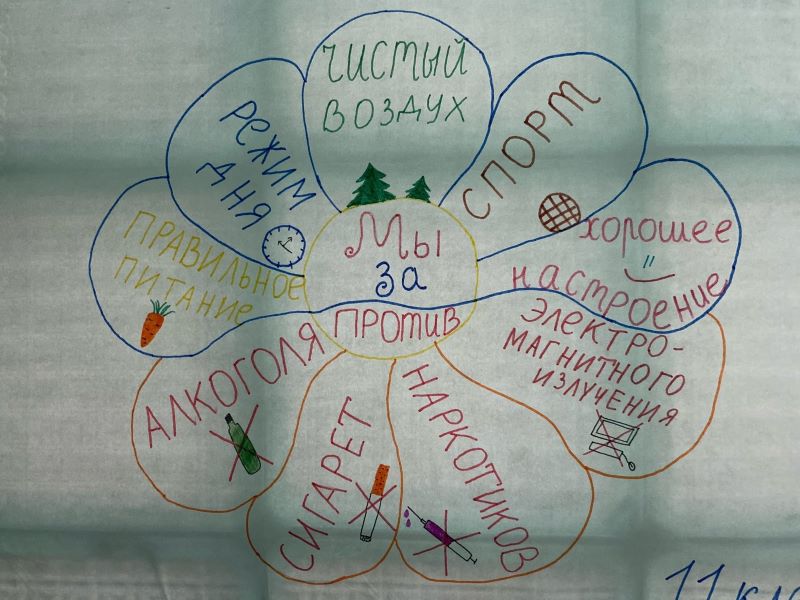 ЧИСТЫЙ
ВОЗДУХ
РЕЖИМ
ДНЯ
СПОРТ
ПРАВИЛЬНОЕ
ПИТАНИЕ
Мы
ЗА
ПРОТИВ
хорошее
настроение
АЛКОГОЛЯ
СИГАРЕТ
НАРКОТИКОВ
ЭЛЕКТРО-
МАГНИТНОГО
ИЗЛУЧЕНИЯ
11